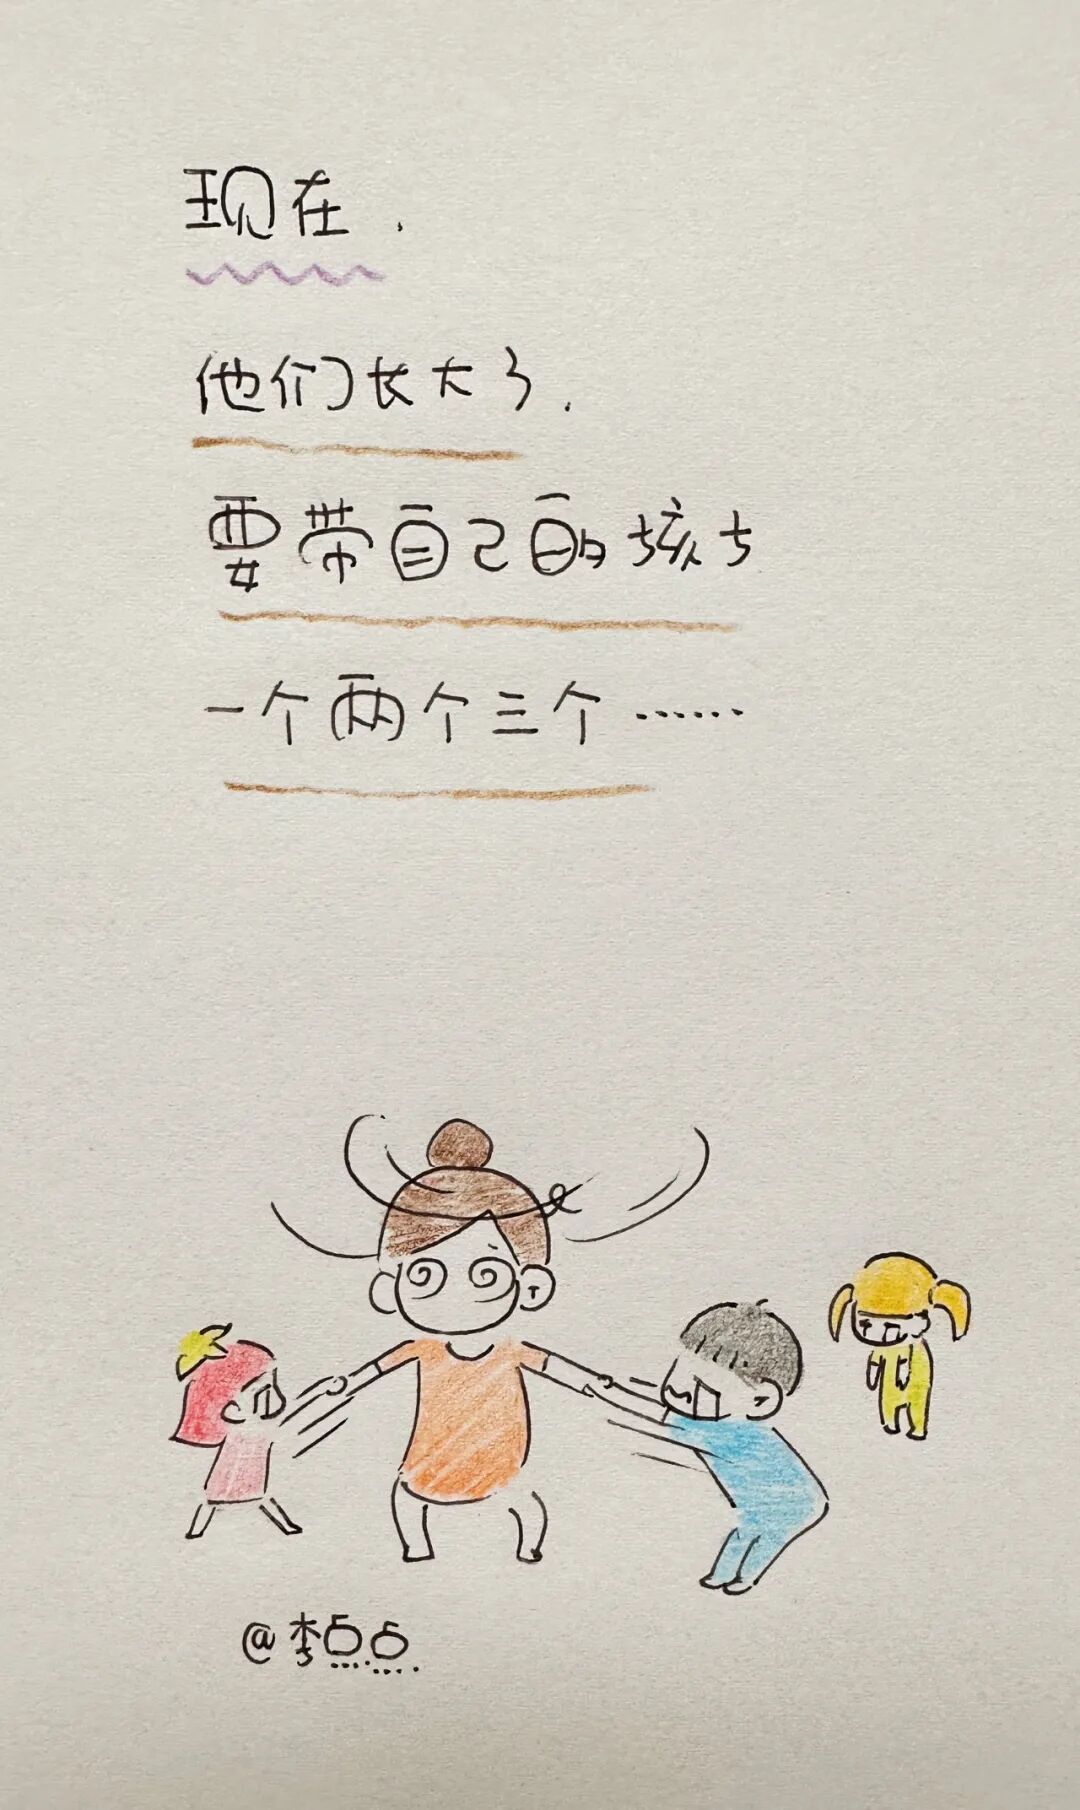 现在，
他们长大了，
要带自己的孩子
一个两个三个……
@李点点